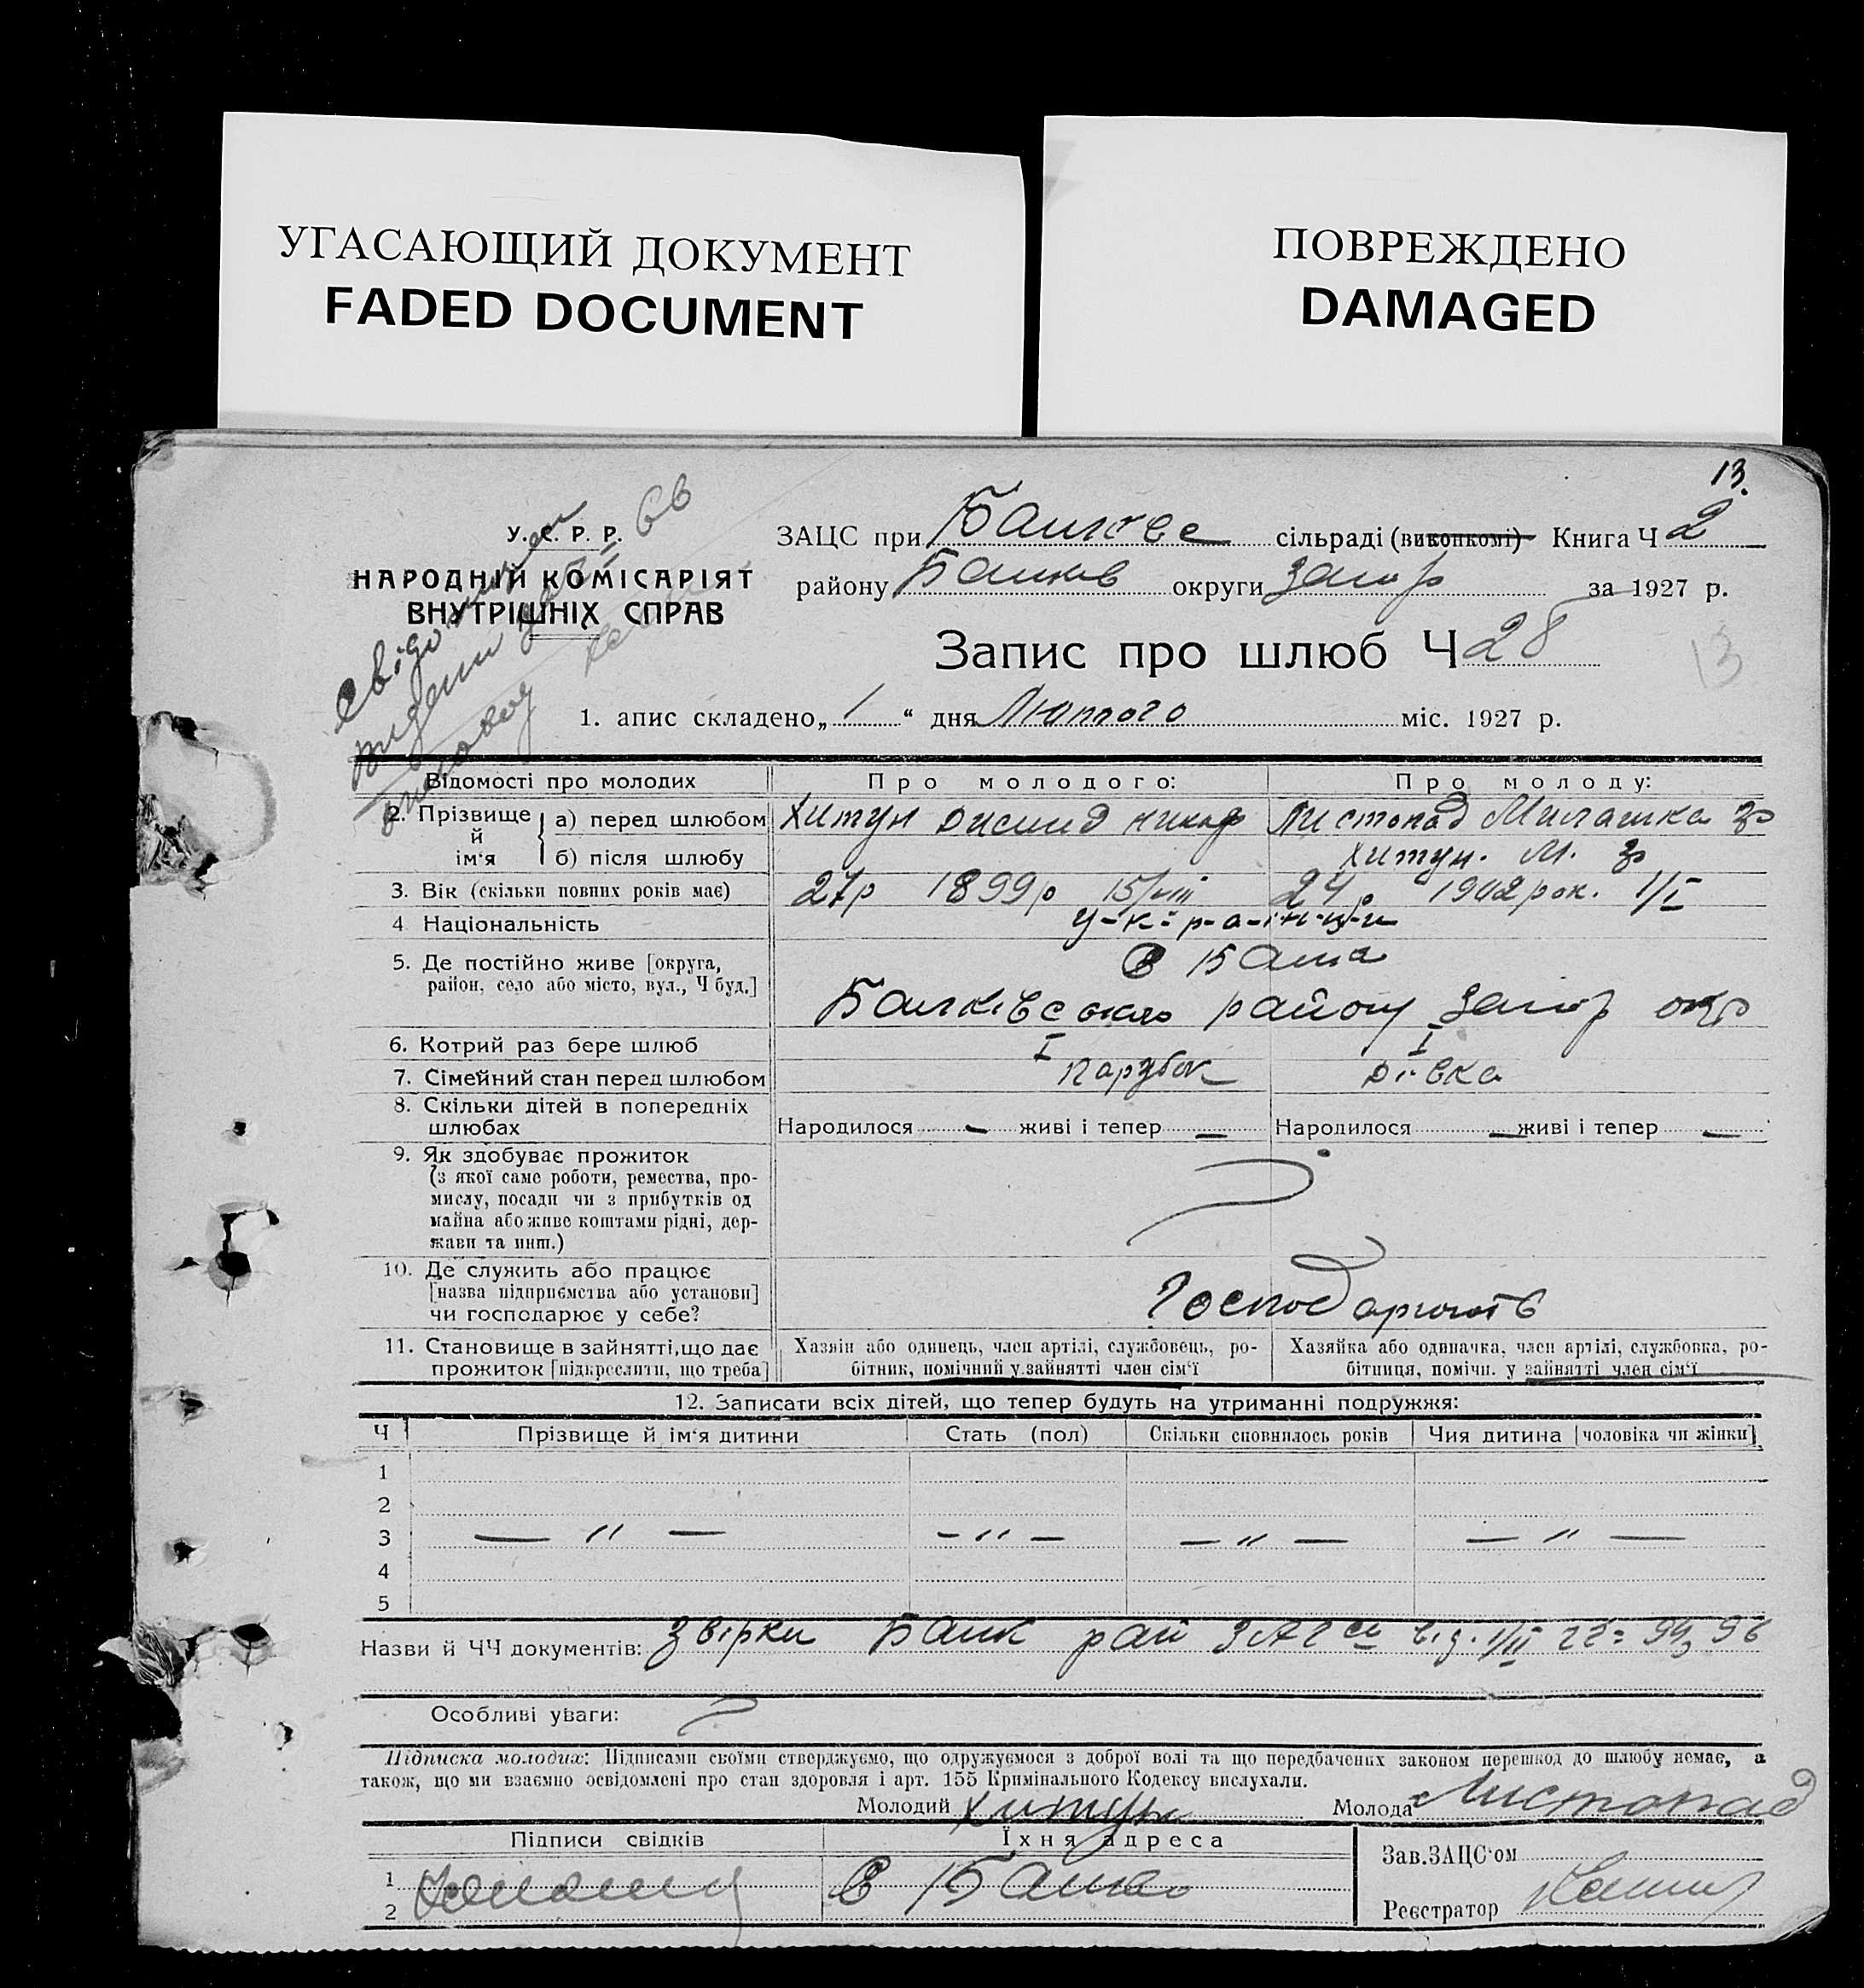 УГАСАЮЩИЙ ДОКУМЕНТ
FADED DOCUMENT
ПОВРЕЖДЕНО
DAMAGED
13.
У. С. Р. Р.
НАРОДНІЙ КОМІСАРІЯТ
ВНУТРІШНІХ СПРАВ
ЗАЦС при сільраді (виконкомі) Книга Ч 2
району округи за 1927 р.
Запис про шлюб Ч 28
13
1. апис складено „ 1 “ дня Лютого міс. 1927 р.
Відомості про молодих Про молодого: Про молоду:
2. Прізвище й ім'я а) перед шлюбом Хитун Листопад
б) після шлюбу Хитун. М.
3. Вік (скільки повних років має) 27р 1899р 15/VIII 24р 1902 рок. 1/I
4 Національність у-к-р-а-ї-н-ц-и
5. Де постійно живе [округа,
район, село або місто, вул., Ч буд.]
району
6. Котрий раз бере шлюб I I
7. Сімейний стан перед шлюбом парубок дівка
8. Скільки дітей в попередніх
шлюбах Народилося — живі і тепер — Народилося — живі і тепер —
9. Як здобуває прожиток
(з якої саме роботи, ремества, про-
мислу, посади чи з прибутків од
майна або живе коштами рідні, дер-
жави та инш.)
10. Де служить або працює
[назва підприємства або установи]
чи господарює у себе? Господарюють
11. Становище в зайнятті, що дає Хазяін або одинець, член артілі, службовець, ро- Хазяйка або одиначка, член артілі, службовка, ро-
прожиток [підкреслити, що треба] бітник, помічний у зайнятті член сім'ї бітниця, помічн. у зайнятті член сім'ї
12. Записати всіх дітей, що тепер будуть на утриманні подружжя:
Ч Прізвище й ім'я дитини Стать (пол) Скільки сповнилось років Чия дитина [чоловіка чи жінки]
1
2
3 — " — — " — — " — — " —
4
5
Назви й ЧЧ документів: звірки рай
Особливі уваги:
Підписка молодих: Підписами своїми стверджуємо, що одружуємося з доброї волі та що передбачених законом перешкод до шлюбу немає, а
також, що ми взаємно освідомлені про стан здоровля і арт. 155 Кримінального Кодексу вислухали.
Молодий Хитун Молода Листопад
Підписи свідків Їхня адреса Зав.ЗАЦС'ом
1
2 Реєстратор